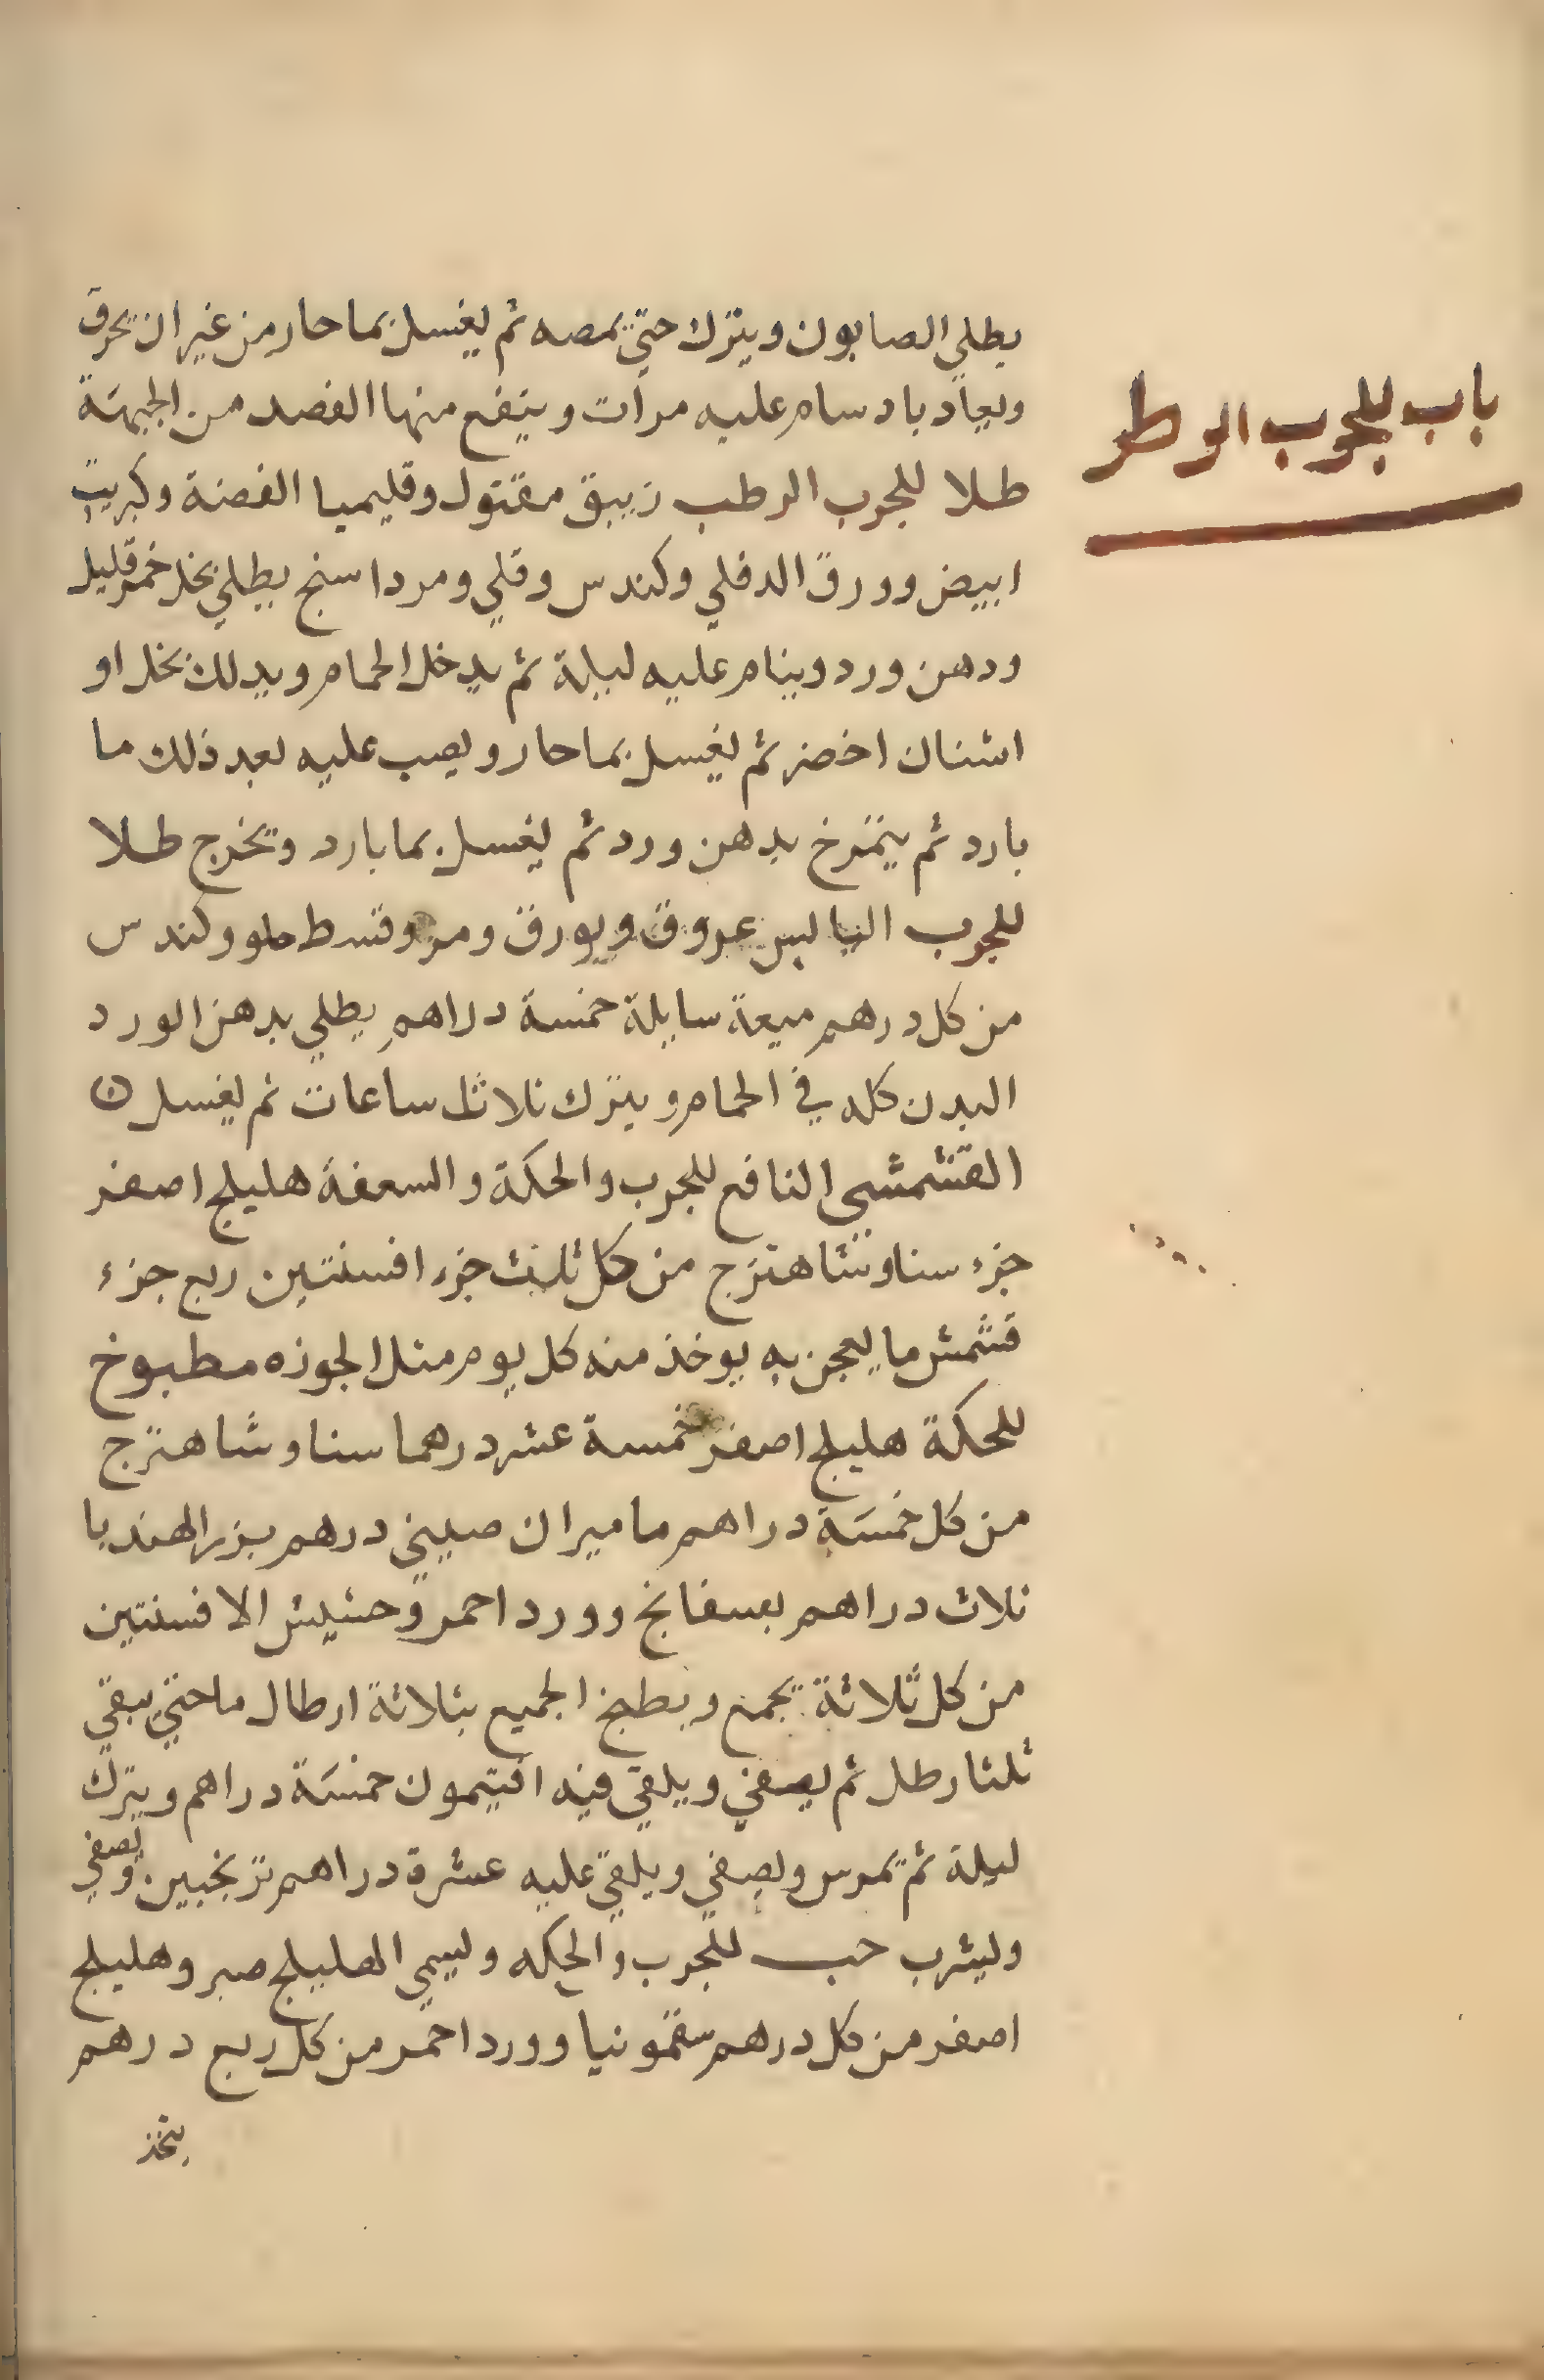 باب للجرب الوطر
يطلي الصابون ويترك حتي يمصه ثم يغسل بما حار من غير ان يحرق
ويعاد باد سام عليه مرات وينفع منها الفصد من الجبهة
طلا للجرب الرطب زيبق مقتول وقليميا الفضة وكبريت
ابيض وورق الدفلي وكندس وقلي ومرداسنج يطلي بخل خمر قليل
ودهن ورد وينام عليه ليلة ثم يدخل الحمام ويدلك بخل او
اشنان اخضر ثم يغسل بما حار ويصب عليه بعد ذلك ما
بارد ثم يتمرخ بدهن ورد ثم يغسل بما بارد ويخرج طلا
للجرب اليابس عروق وبورق ومر وقسط حلو وكندس
من كل درهم ميعة سايلة خمسة دراهم يطلي بدهن الورد
البدن كله في الحمام ويترك ثلاث ساعات ثم يغسل ن
القشمشي النافع للجرب والحكة والسعفة هليلج اصفر
جزء سنا وشاهترج من كل ثلث جزء افسنتين ربع جزء
قشمش ما يعجن به يوخذ منه كل يوم مثل الجوزه مطبوخ
للحكة هليلج اصفر خمسة عشر درهما سنا وشاهترج
من كل خمسة دراهم ماميران صيني درهم بزر الهندبا
ثلاث دراهم بسفايج وورد احمر وحشيش الافسنتين
من كل ثلاثة يجمع ويطبخ الجميع بثلاثة ارطال ما حتي يبقي
ثلثا رطل ثم يصفي ويلقي فيه افتيمون خمسة دراهم ويترك
ليلة ثم يمرس ويصفي ويلقي عليه عشرة دراهم ترنجبين ويصفي
وليشرب حب للجرب والحكه وليسمي الهليلج صبر وهليلج
اصفر من كل درهم سقمونيا وورد احمر من كل ربع درهم
يتخذ